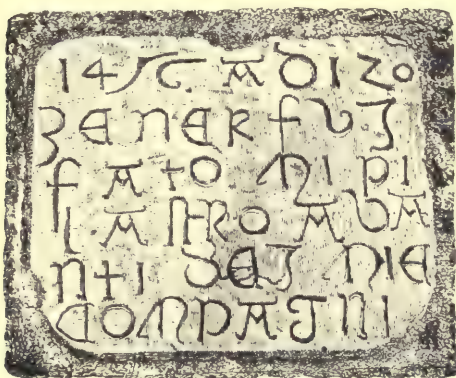 1456 A DI 20
ZENER FU Z
FATO MI PI
LASTRO AVA
NTI DEI MIE
COMPAGNI